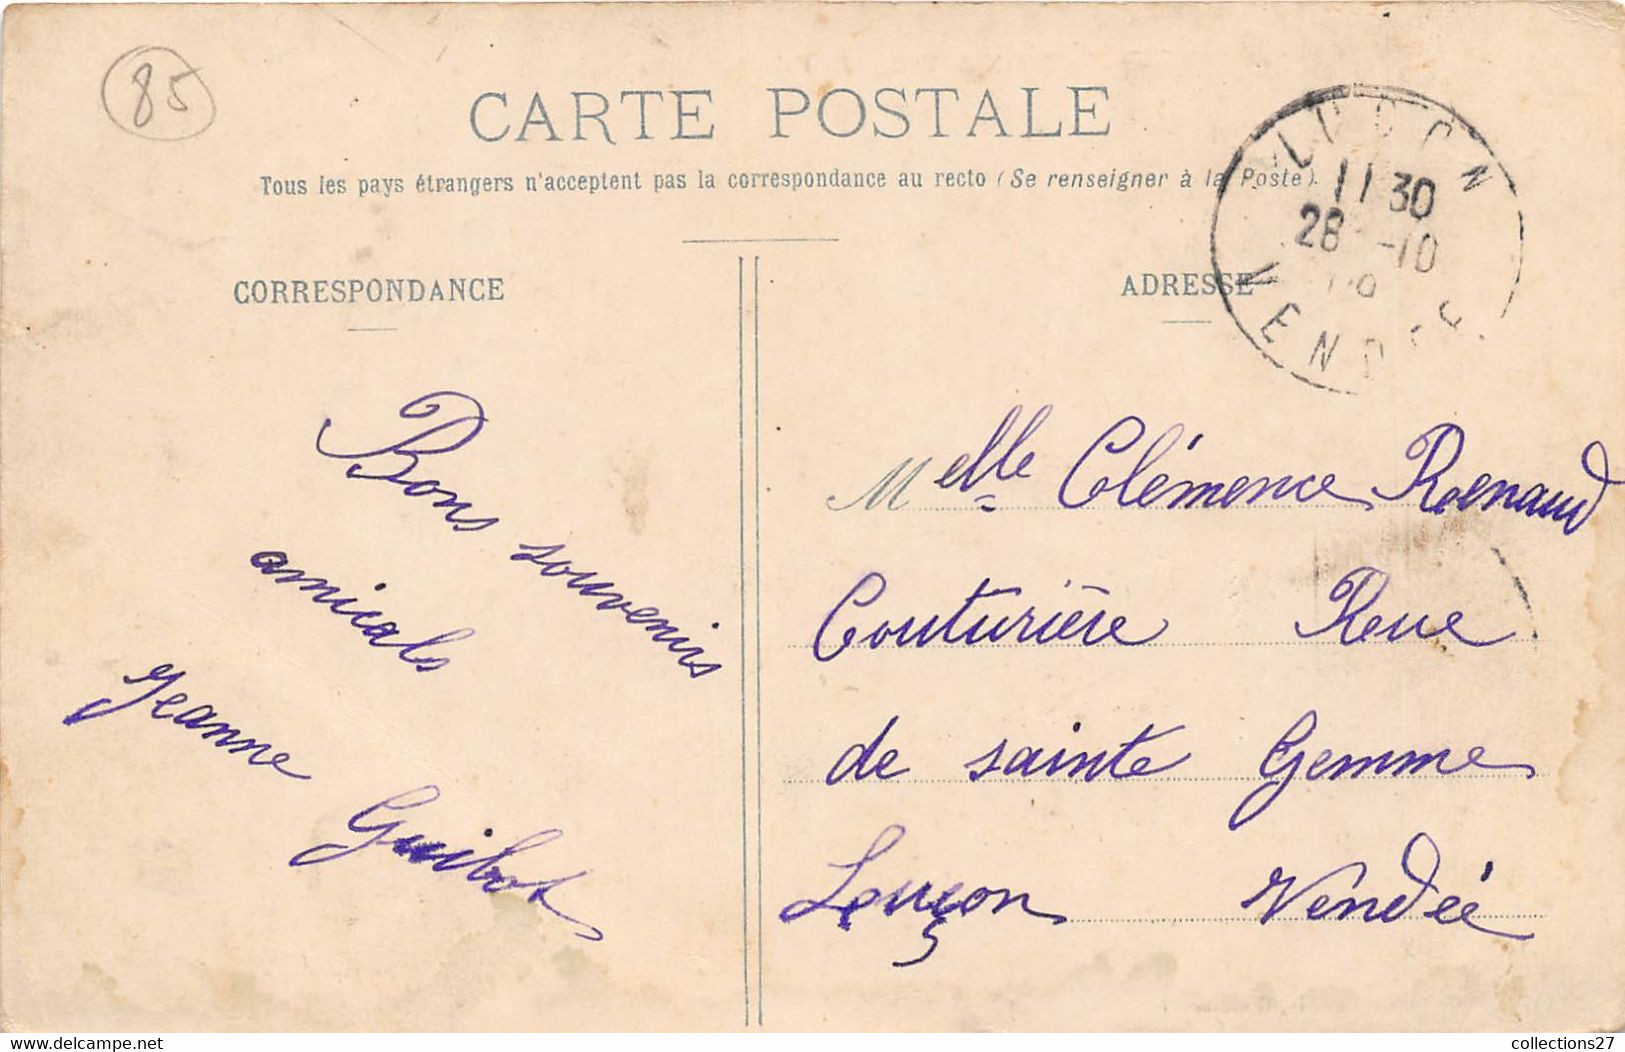 85
CARTE POSTALE
Tous les pays étrangers n'acceptent pas la correspondance au recto (Se renseigner à la Poste).
LUÇON
11 30
28 -10
VENDÉE
CORRESPONDANCE
ADRESSE
Bons souvenirs
amicals
Jeanne Guibot
Melle Clémence Renaud
Couturière Rue
de sainte Gemme
Luçon Vendée
https://www.delcampe.net
collections27